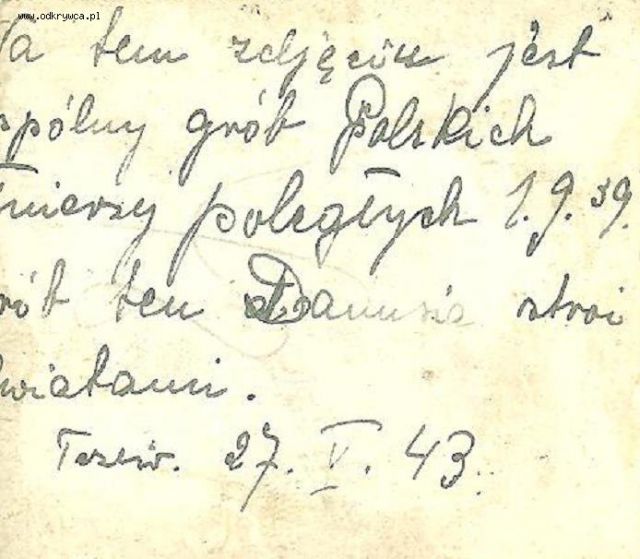 www.odkrywca.pl
a tem zdjęciu jest
spólny grób Polskich
nierzy poległych 1.9.39.
rób ten Danusia stroi
kwiatami.
Tczew. 27. V. 43.